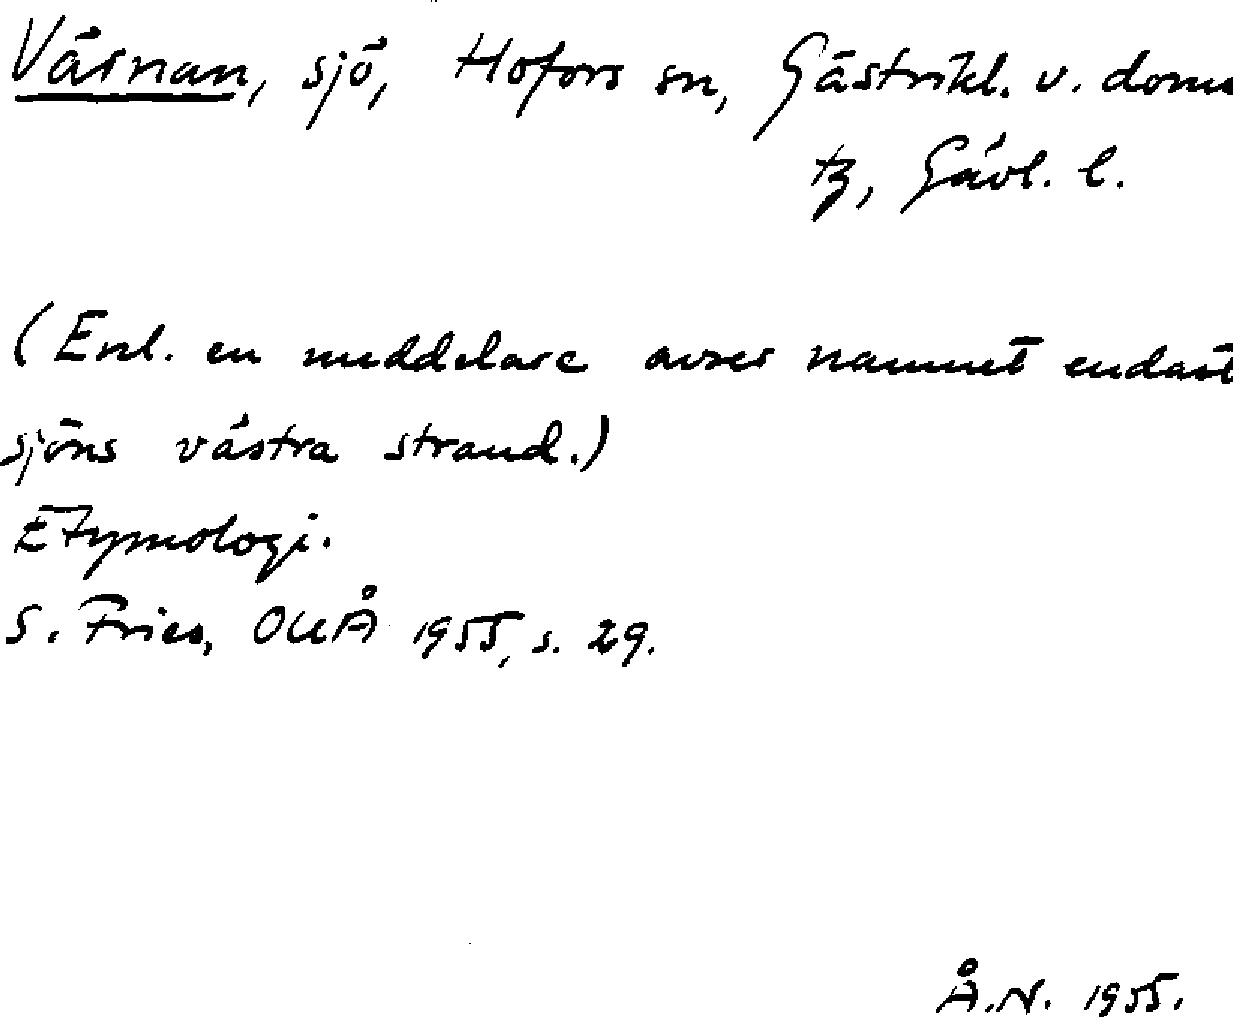 Värnan, sjö, Hofors sn, Gästrikl. v. doms
tg, Gävl. l.
(Enl. en meddelare avser namnet endast
sjöns västra strand.)
Etymologi.
S. Fries, OUÅ 1955, s. 29.
Å.N. 1955.